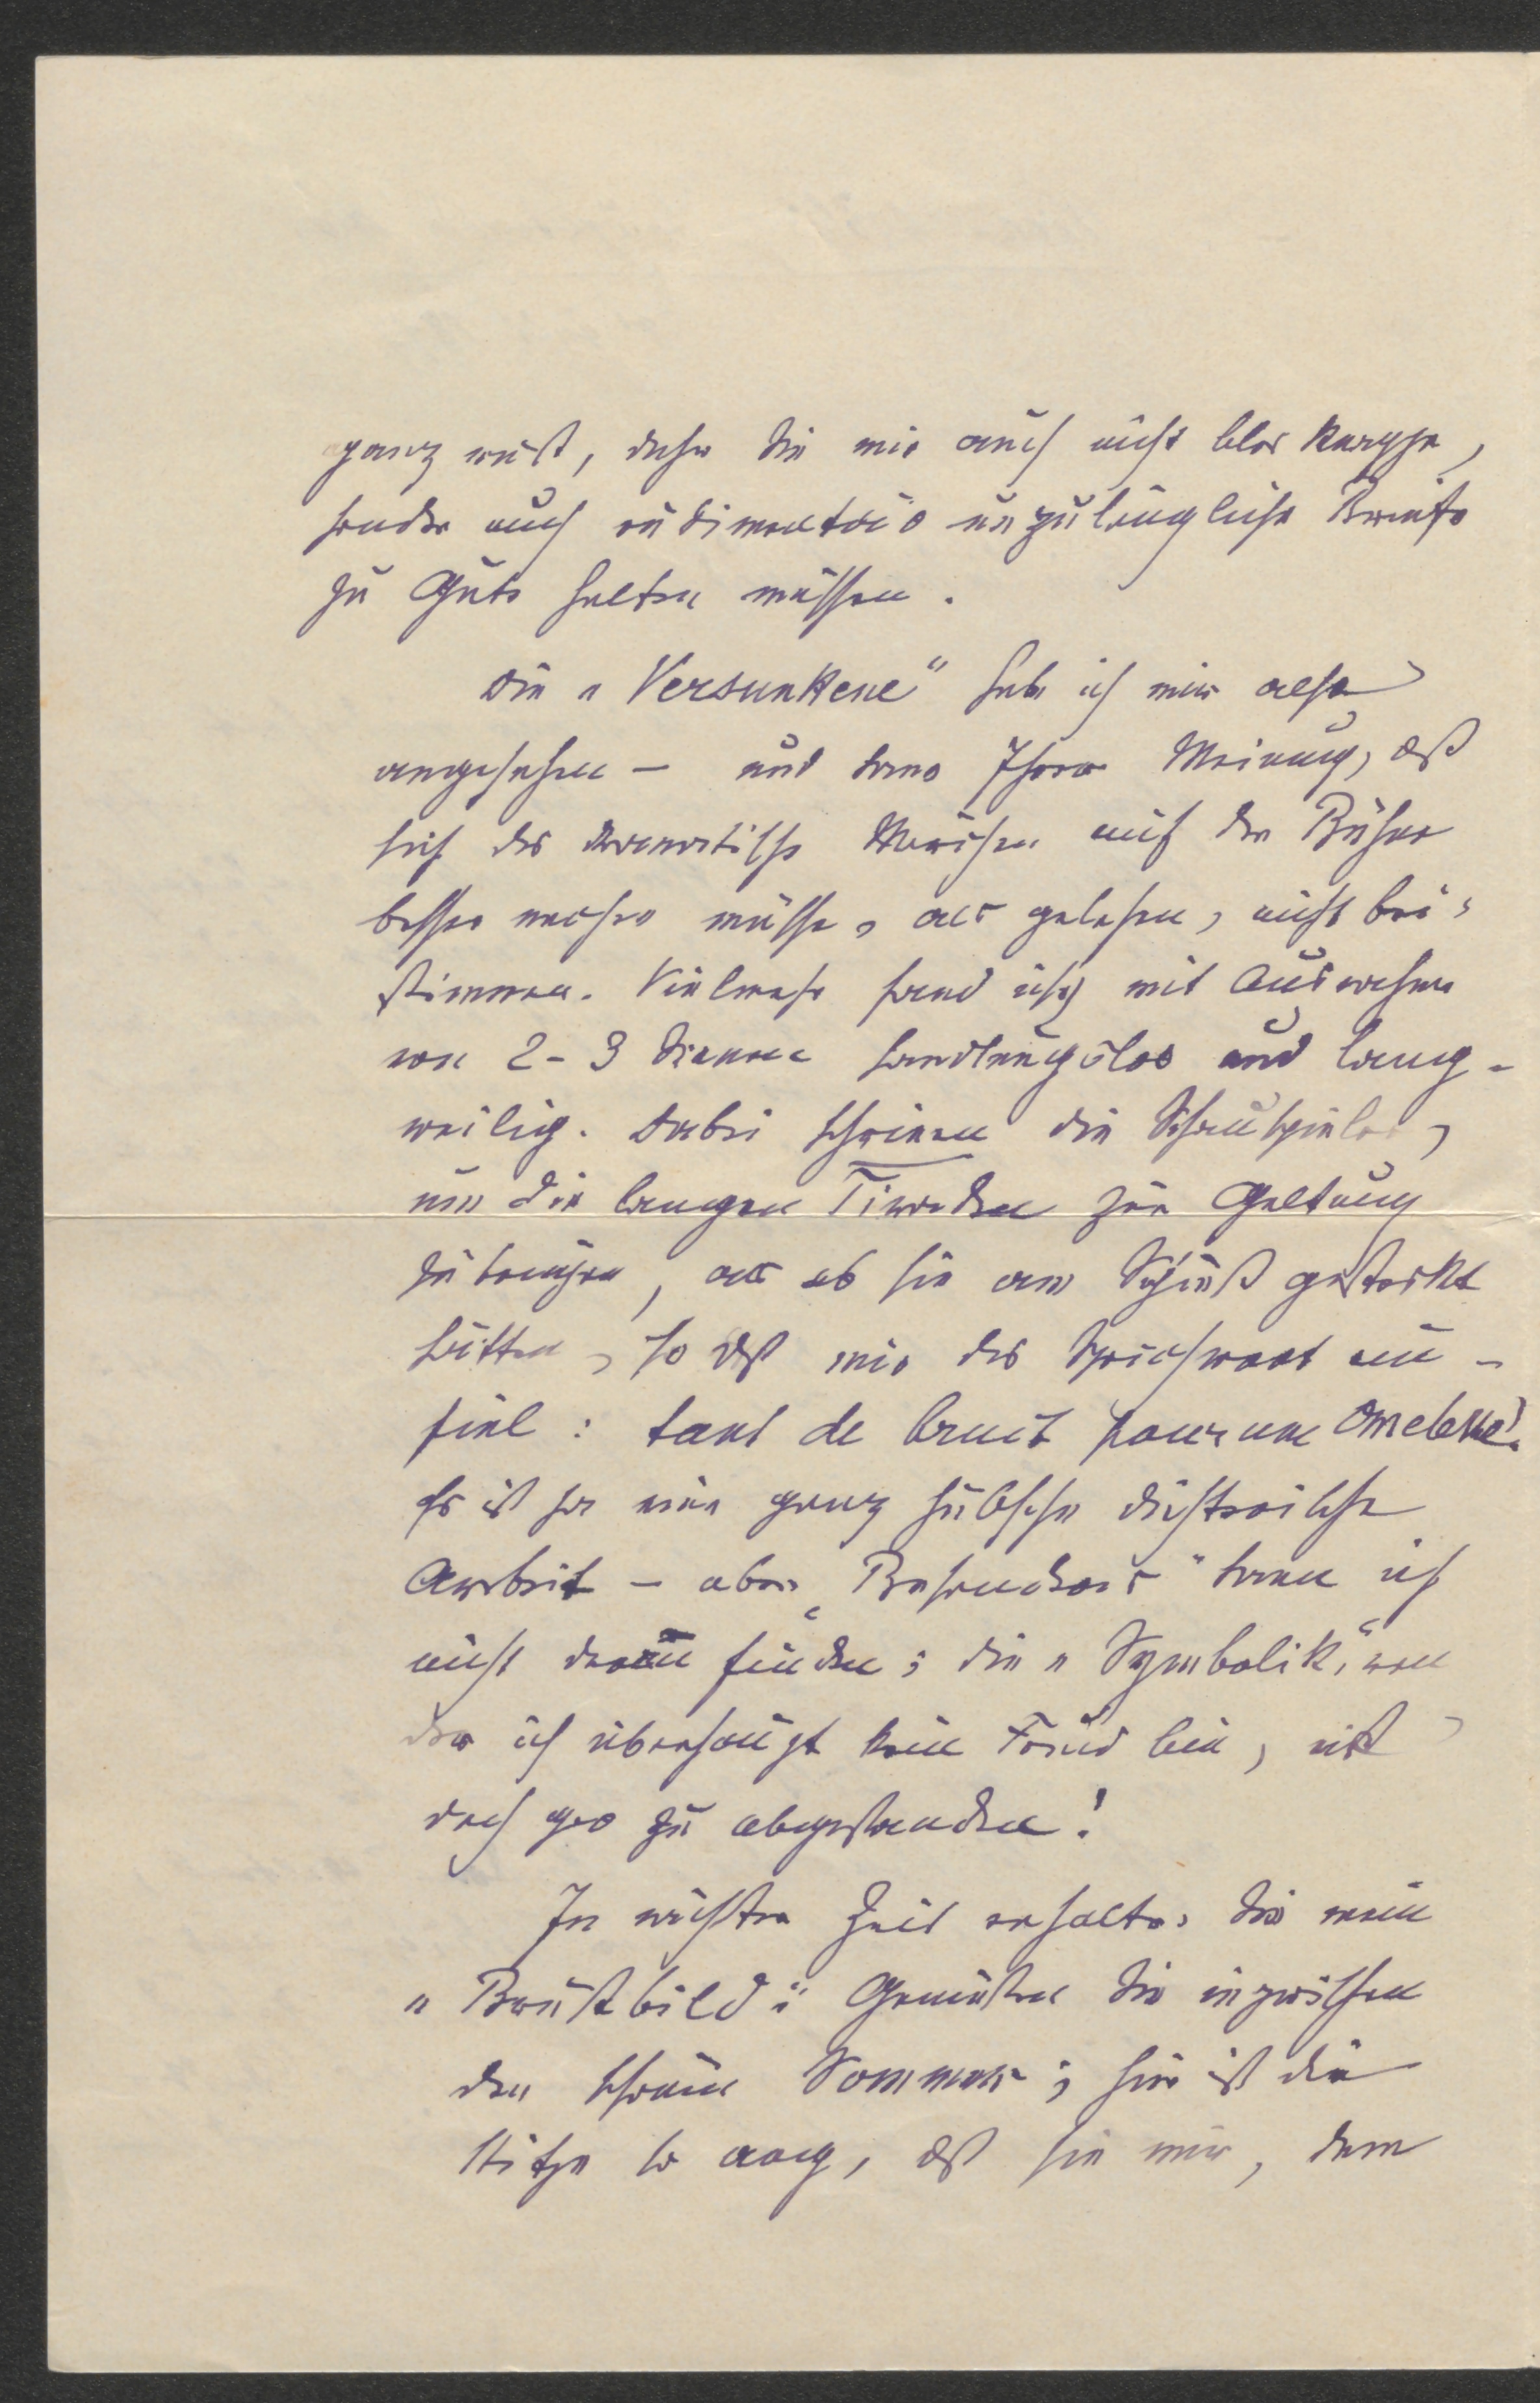 ganz wüst, daher Sie mir auch nicht blos knappe,
sondern auch rudimentär unzulängliche Briefe
zu Gute halten müssen.
Die „Versunkene" habe ich mir also
angesehen – und kann Ihrer Meinung, dß
sich das dramatische Märchen auf der Bühne
besser machen müsse, als gelesen, nicht bei-
stimmen. Vielmehr fand ichs mit Ausnahme
von 2-3 Scenen handlungslos und lang-
weilig. Dabei schrieen die Schauspieler,
um die langen Tiraden zur Geltung
zu bringen, als ob sie am Spieß gesteckt
hätten, so dß mir das Sprichwort ein-
fiel: tant de bruit pour une omelette!
Es ist ja eine ganz hübsche dichterische
Arbeit – aber „Besonders" kann ich
nicht daran finden; die „Symbolik", von
der ich überhaupt kein Freund bin, ist
doch gar zu abgestanden!
In nächster Zeit erhalten Sie mein
„Brustbild". Genießen Sie inzwischen
den schönen Sommer; hier ist die
Hitze so arg, dß sie mir, dem